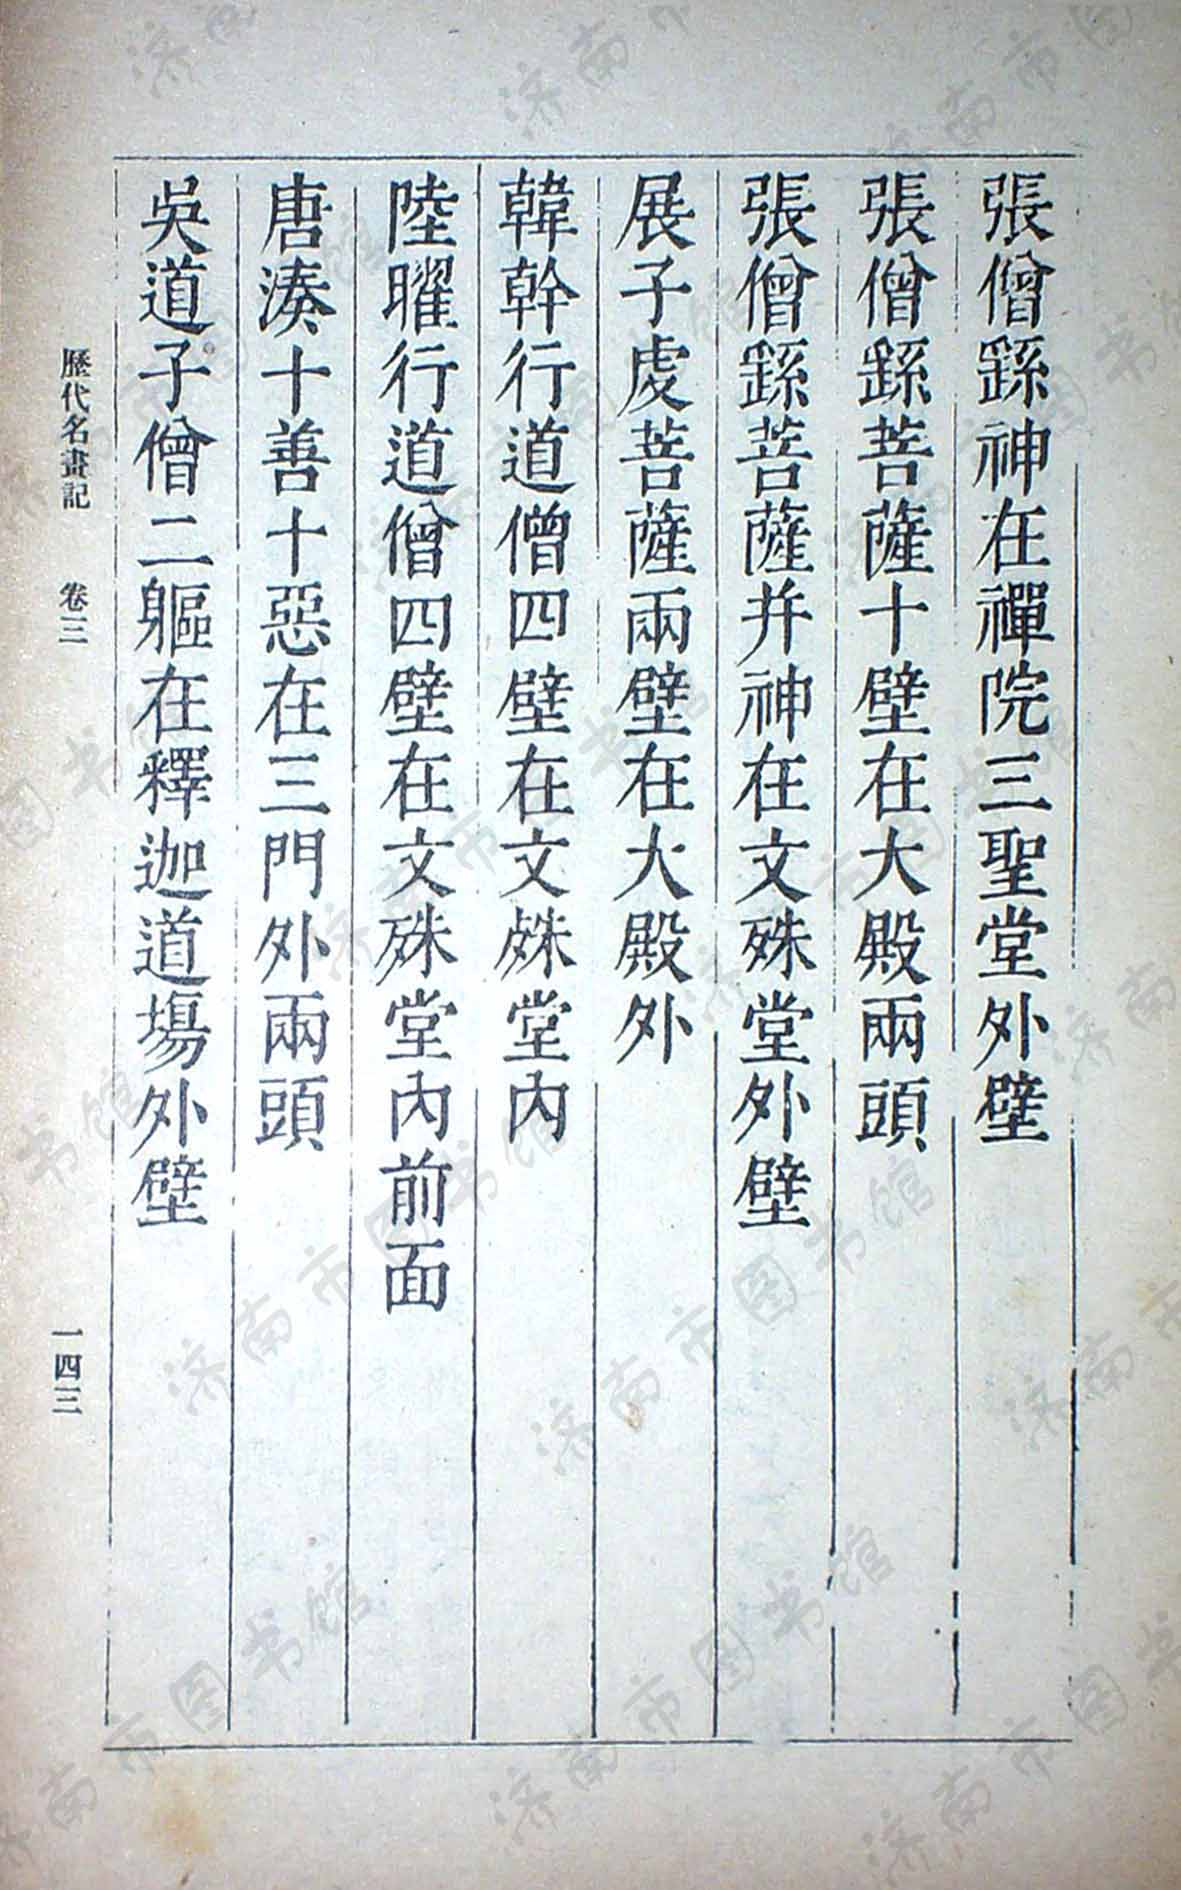 張僧繇神在禪院三聖堂外壁
張僧繇菩薩十壁在大殿兩頭
張僧繇菩薩并神在文殊堂外壁
展子虔菩薩兩壁在大殿外
韓幹行道僧四壁在文殊堂內
陸曜行道僧四壁在文殊堂內前面
唐湊十善十惡在三門外兩頭
吳道子僧二軀在釋迦道場外壁
歷代名畫記 卷三 一四三
济南市图书馆